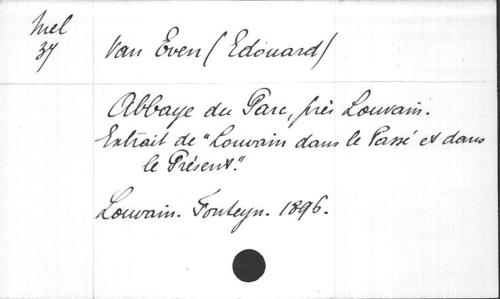 Mel
37
Van Even (Edouard)
Abbaye du Parc, près Louvain.
Extrait de "Louvain dans le Passé et dans
le Présent."
Louvain. Fonteyn. 1896.